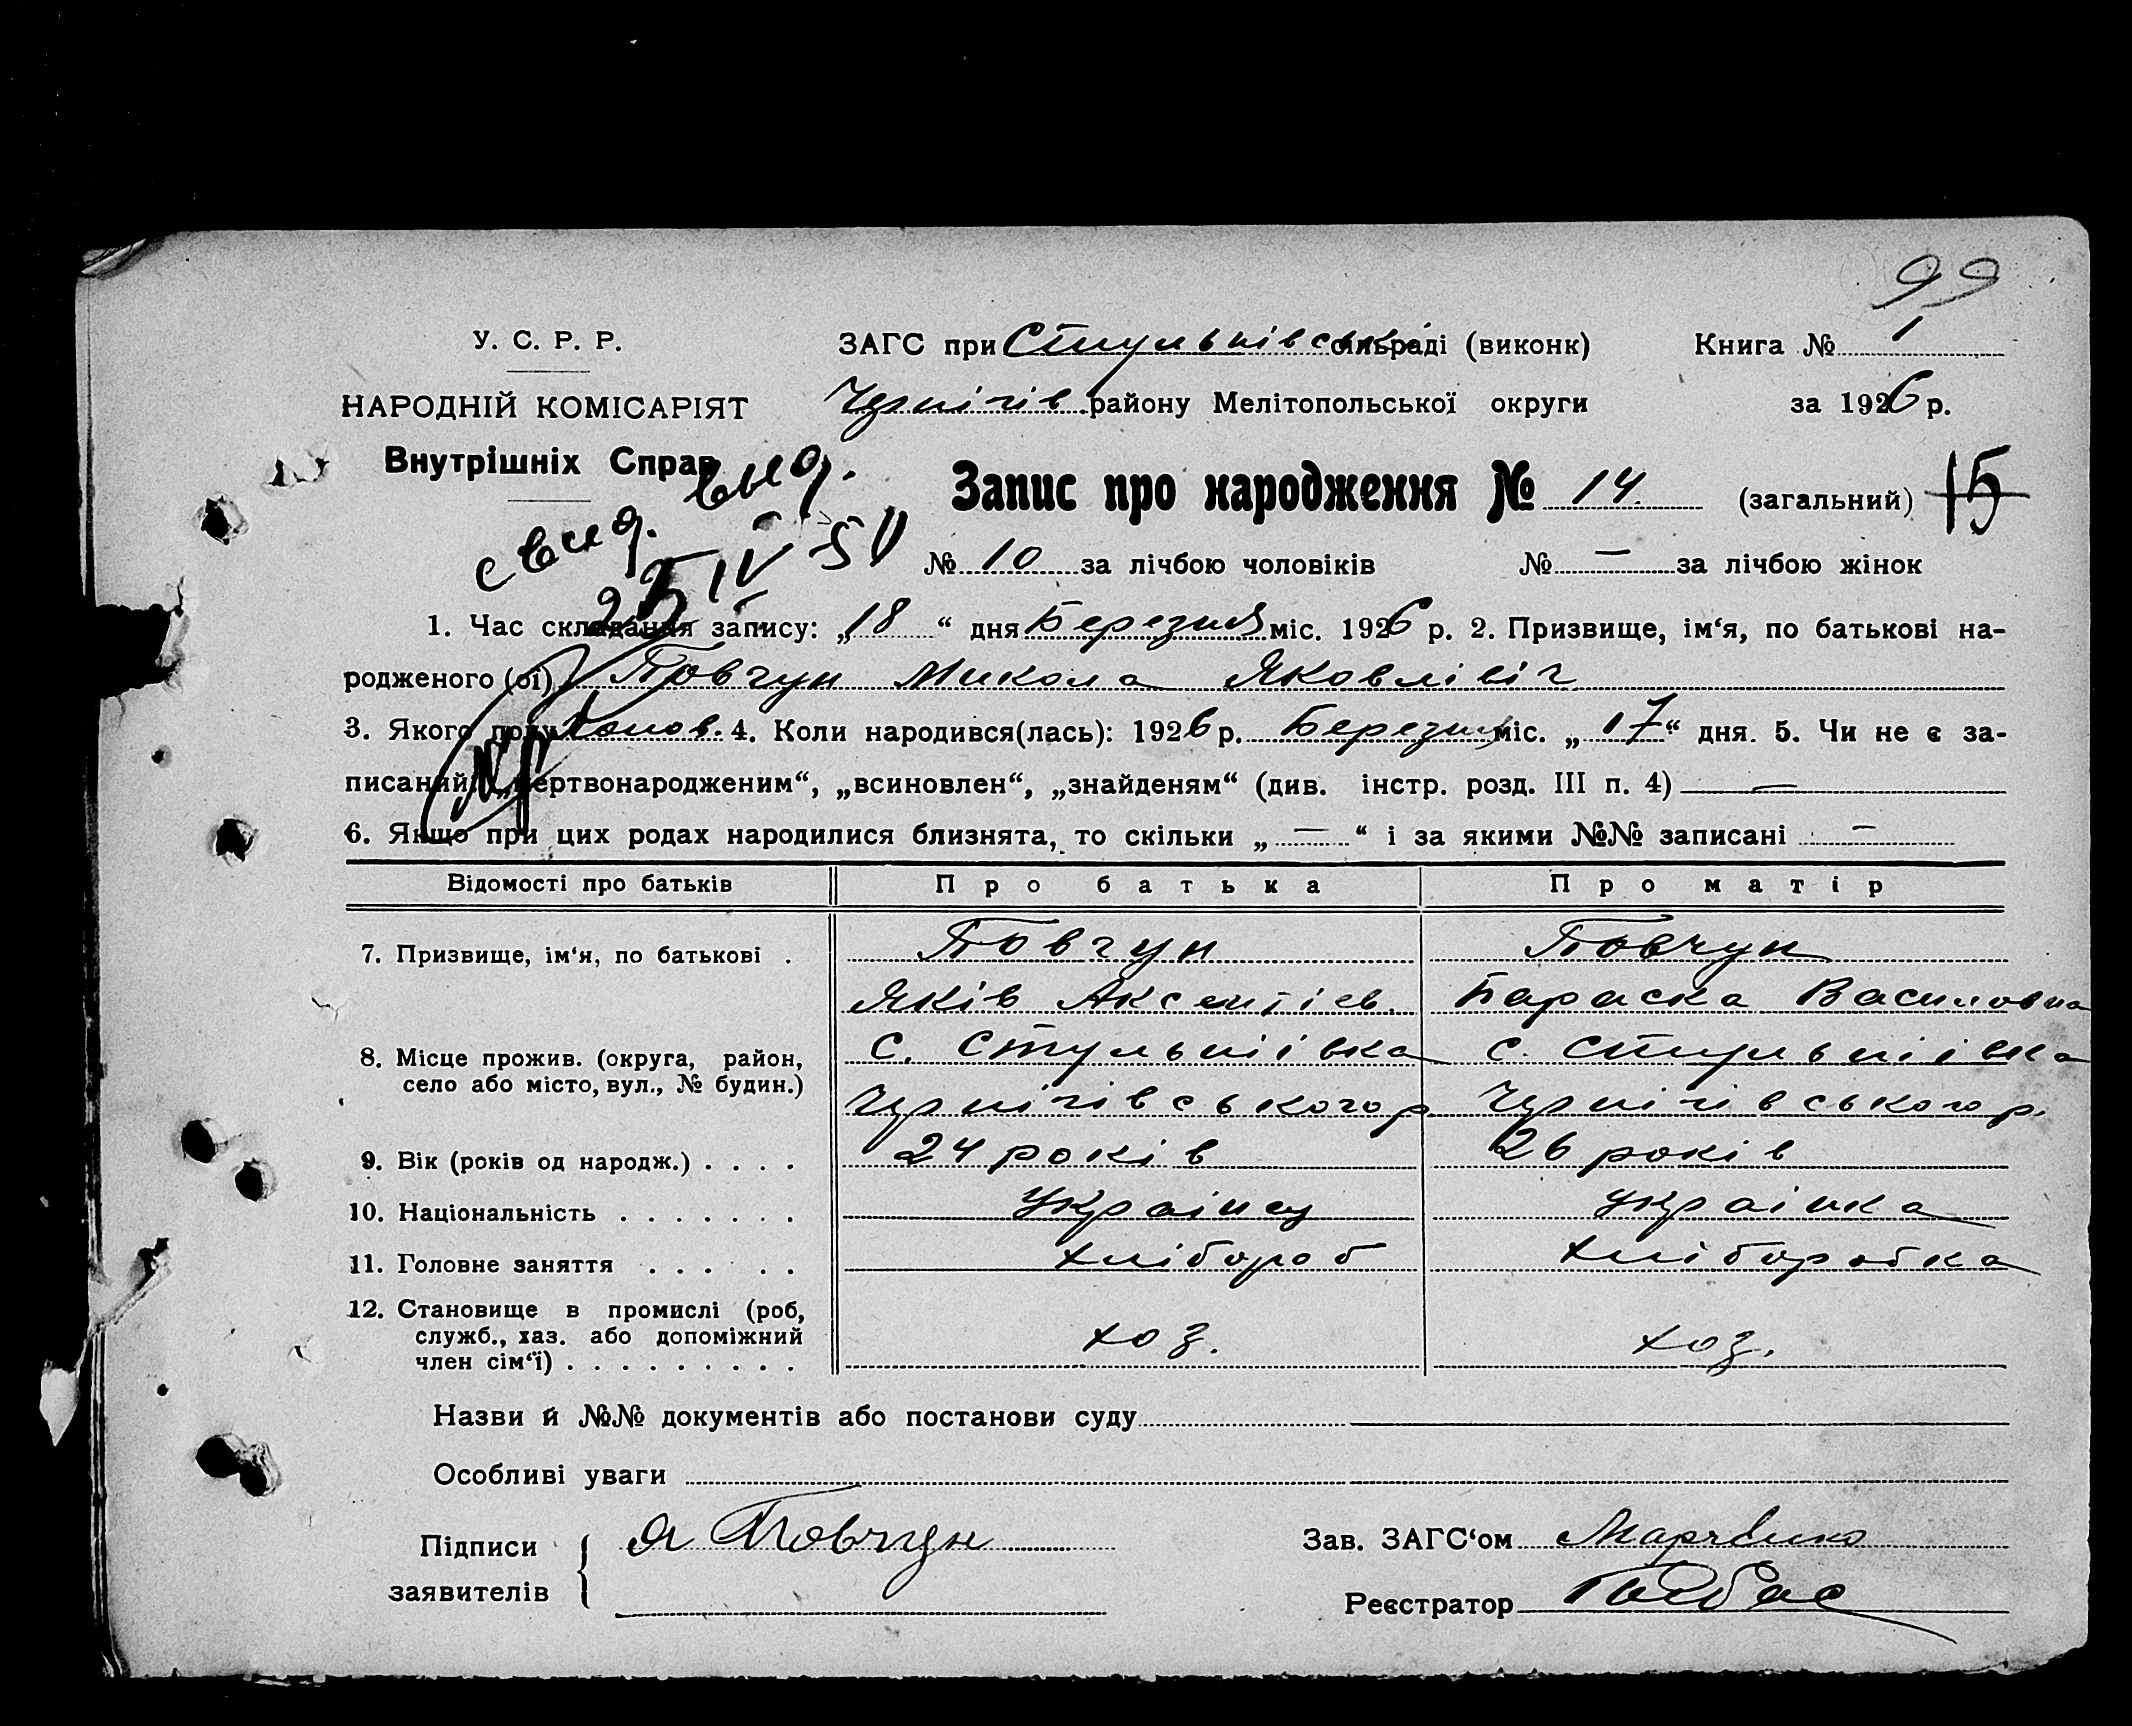 99
У. С. Р. Р.
ЗАГС при Стульнівськ. сільраді (виконк)
Книга № 1
НАРОДНІЙ КОМІСАРІЯТ
Чернігів району Мелітопольської округи
за 1926 р.
Внутрішніх Справ
свид. выд.
25 IV 50
Запис про народження № 14. (загальний) 15
№ 10 за лічбою чоловіків № — за лічбою жінок
1. Час складання запису: „18“ дня Березня міс. 1926 р. 2. Призвище, ім‘я, по батькові на-
родженого (ої) Повчун Микола Яковлівіч
3. Якого полу Чолов. 4. Коли народився(лась): 1926 р. Березня міс. „17“ дня. 5. Чи не є за-
писаний: „мертвонародженим“, „всиновлен“, „знайденям“ (див. інстр. розд. III п. 4) —
6. Якщо при цих родах народилися близнята, то скільки „—“ і за якими №№ записані —
Відомості про батьків Про батька Про матір
7. Призвище, ім‘я, по батькові . Повчун Повчун
Яків Аксентіев. Параска Василовна
8. Місце прожив. (округа, район, с. Стульнівка с. Стульнівка
село або місто, вул., № будин.) Чернігівського р. Чернігівського р.
9. Вік (років од народж.) . . . . 24 років 26 років
10. Національність . . . . . . . Українец українка
11. Головне заняття . . . . . хлібороб хліборобка
12. Становище в промислі (роб,
служб., хаз. або допоміжний хоз. хоз.
член сім‘ї) . . . . . . . . .
Назви й №№ документів або постанови суду
Особливі уваги
Підписи Я Повчун
заявителів
Зав. ЗАГС‘ом Марченко
Реєстратор